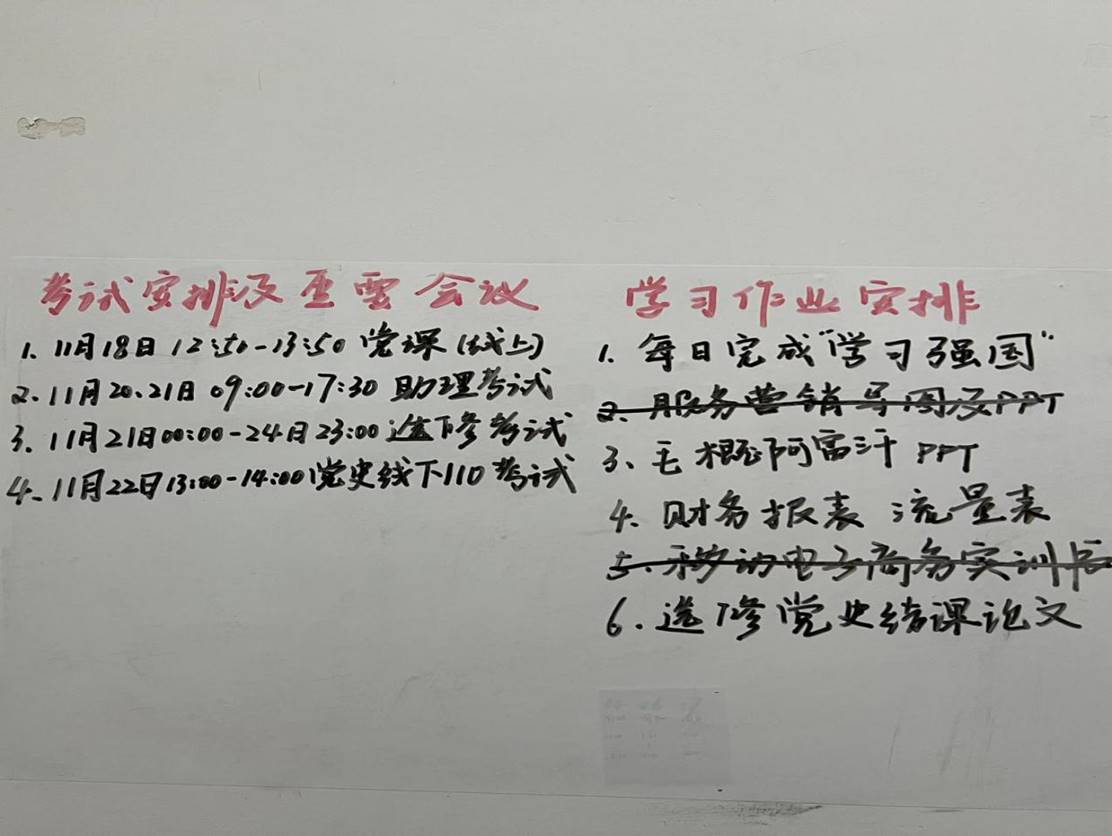 考试安排及重要会议
1. 11月18日 12:50-13:50 党课(线上)
2. 11月20.21日 09:00-17:30 助理考试
3. 11月21日00:00-24日23:00 选修考试
4. 11月22日13:00-14:00 党史线下110考试
学习作业安排
1. 每日完成"学习强国"
2. 服务营销导图及PPT
3、毛概阿富汗 PPT
4. 财务报表 流量表
5. 移动电子商务实训
6. 选修党史结课论文